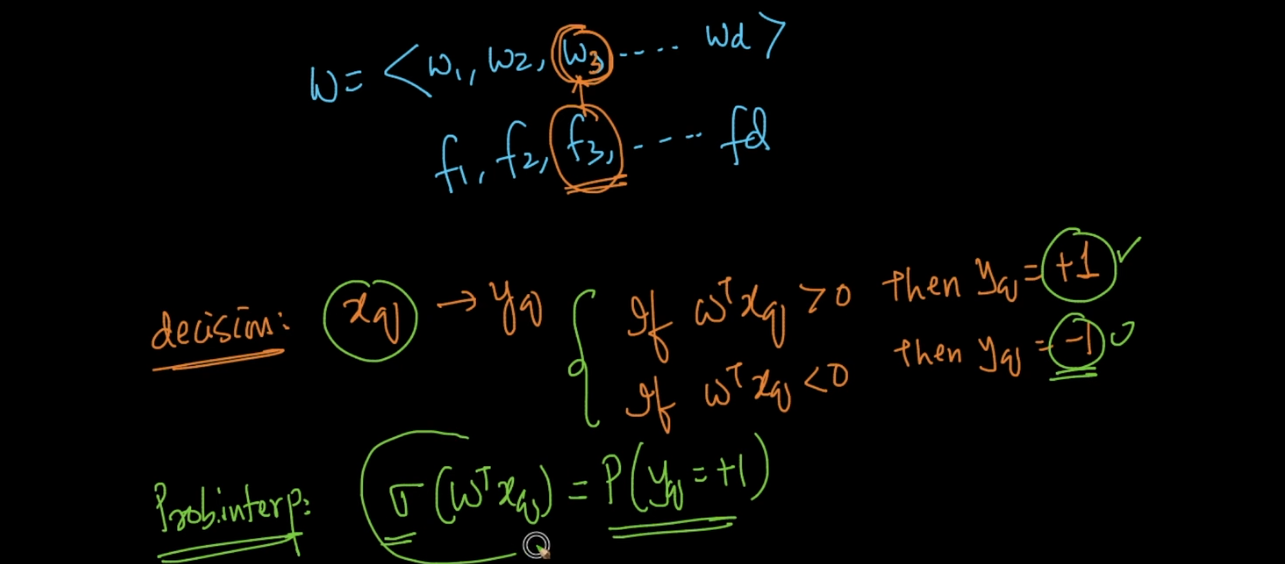 W = < W1, W2, W3 ..... Wd >
f1, f2, f3, .... fd
decision: xq → yq { If wᵀxq > 0 then yq = +1 ✓
If wᵀxq < 0 then yq = -1 0
Prob.interp: σ(wᵀxq) = P(yq = +1)